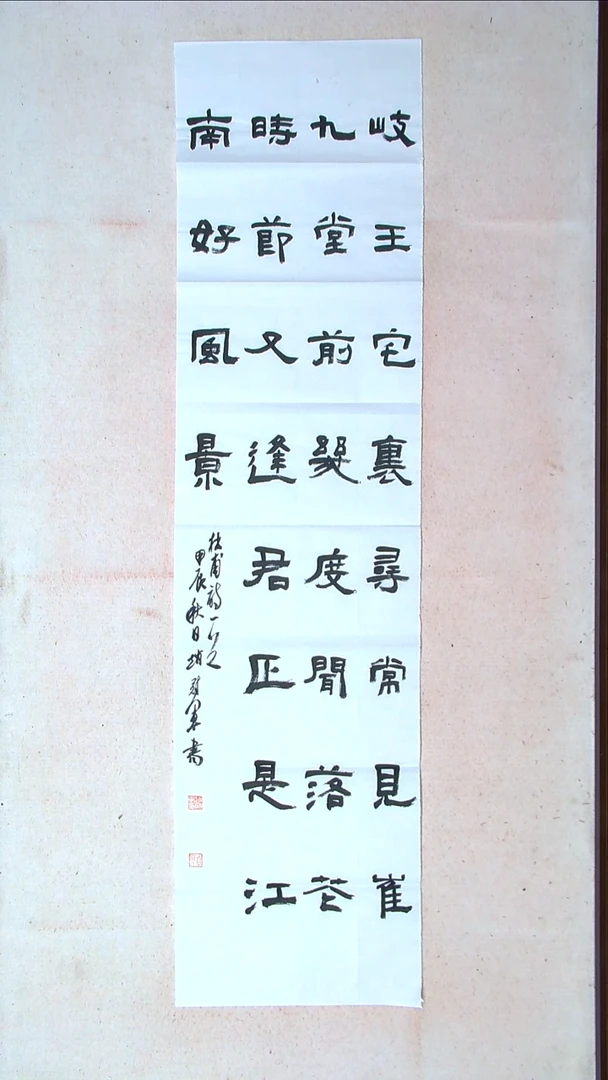 岐王宅裏尋常見崔
九堂前幾度聞落花
時節又逢君正是江
南好風景
杜甫詩一
甲辰秋日 書